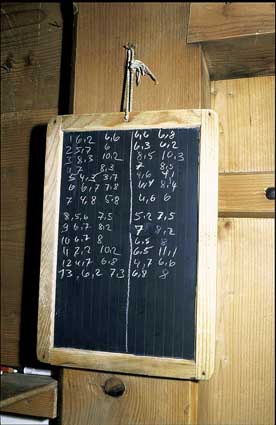 1 6,2 6,6 6,6 6,8
2 5,7 6 6,3 6,2
3 8,3 10,2 8,5 10,3
4 7 8,3 7 8,5
5 4,3 3,7 4,6 4,1
6 6,7 7,8 6,4 8,4
7 4,8 5,8 4,6 6
8,5,6 7,5 5,2 7,5
9 6,7 8,2 7 8,2
10 6,7 8 6,5 8
11 7,2 10,2 6,5 11,1
12 4,7 6,8 4,7 6,6
13, 6,2 7,3 6,8 8